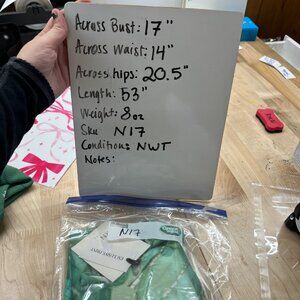 Across Bust: 17"
Across Waist: 14"
Across hips: 20.5"
Length: 53"
Weight: 8oz
Sku N17
Condition: NWT
Notes:
N17